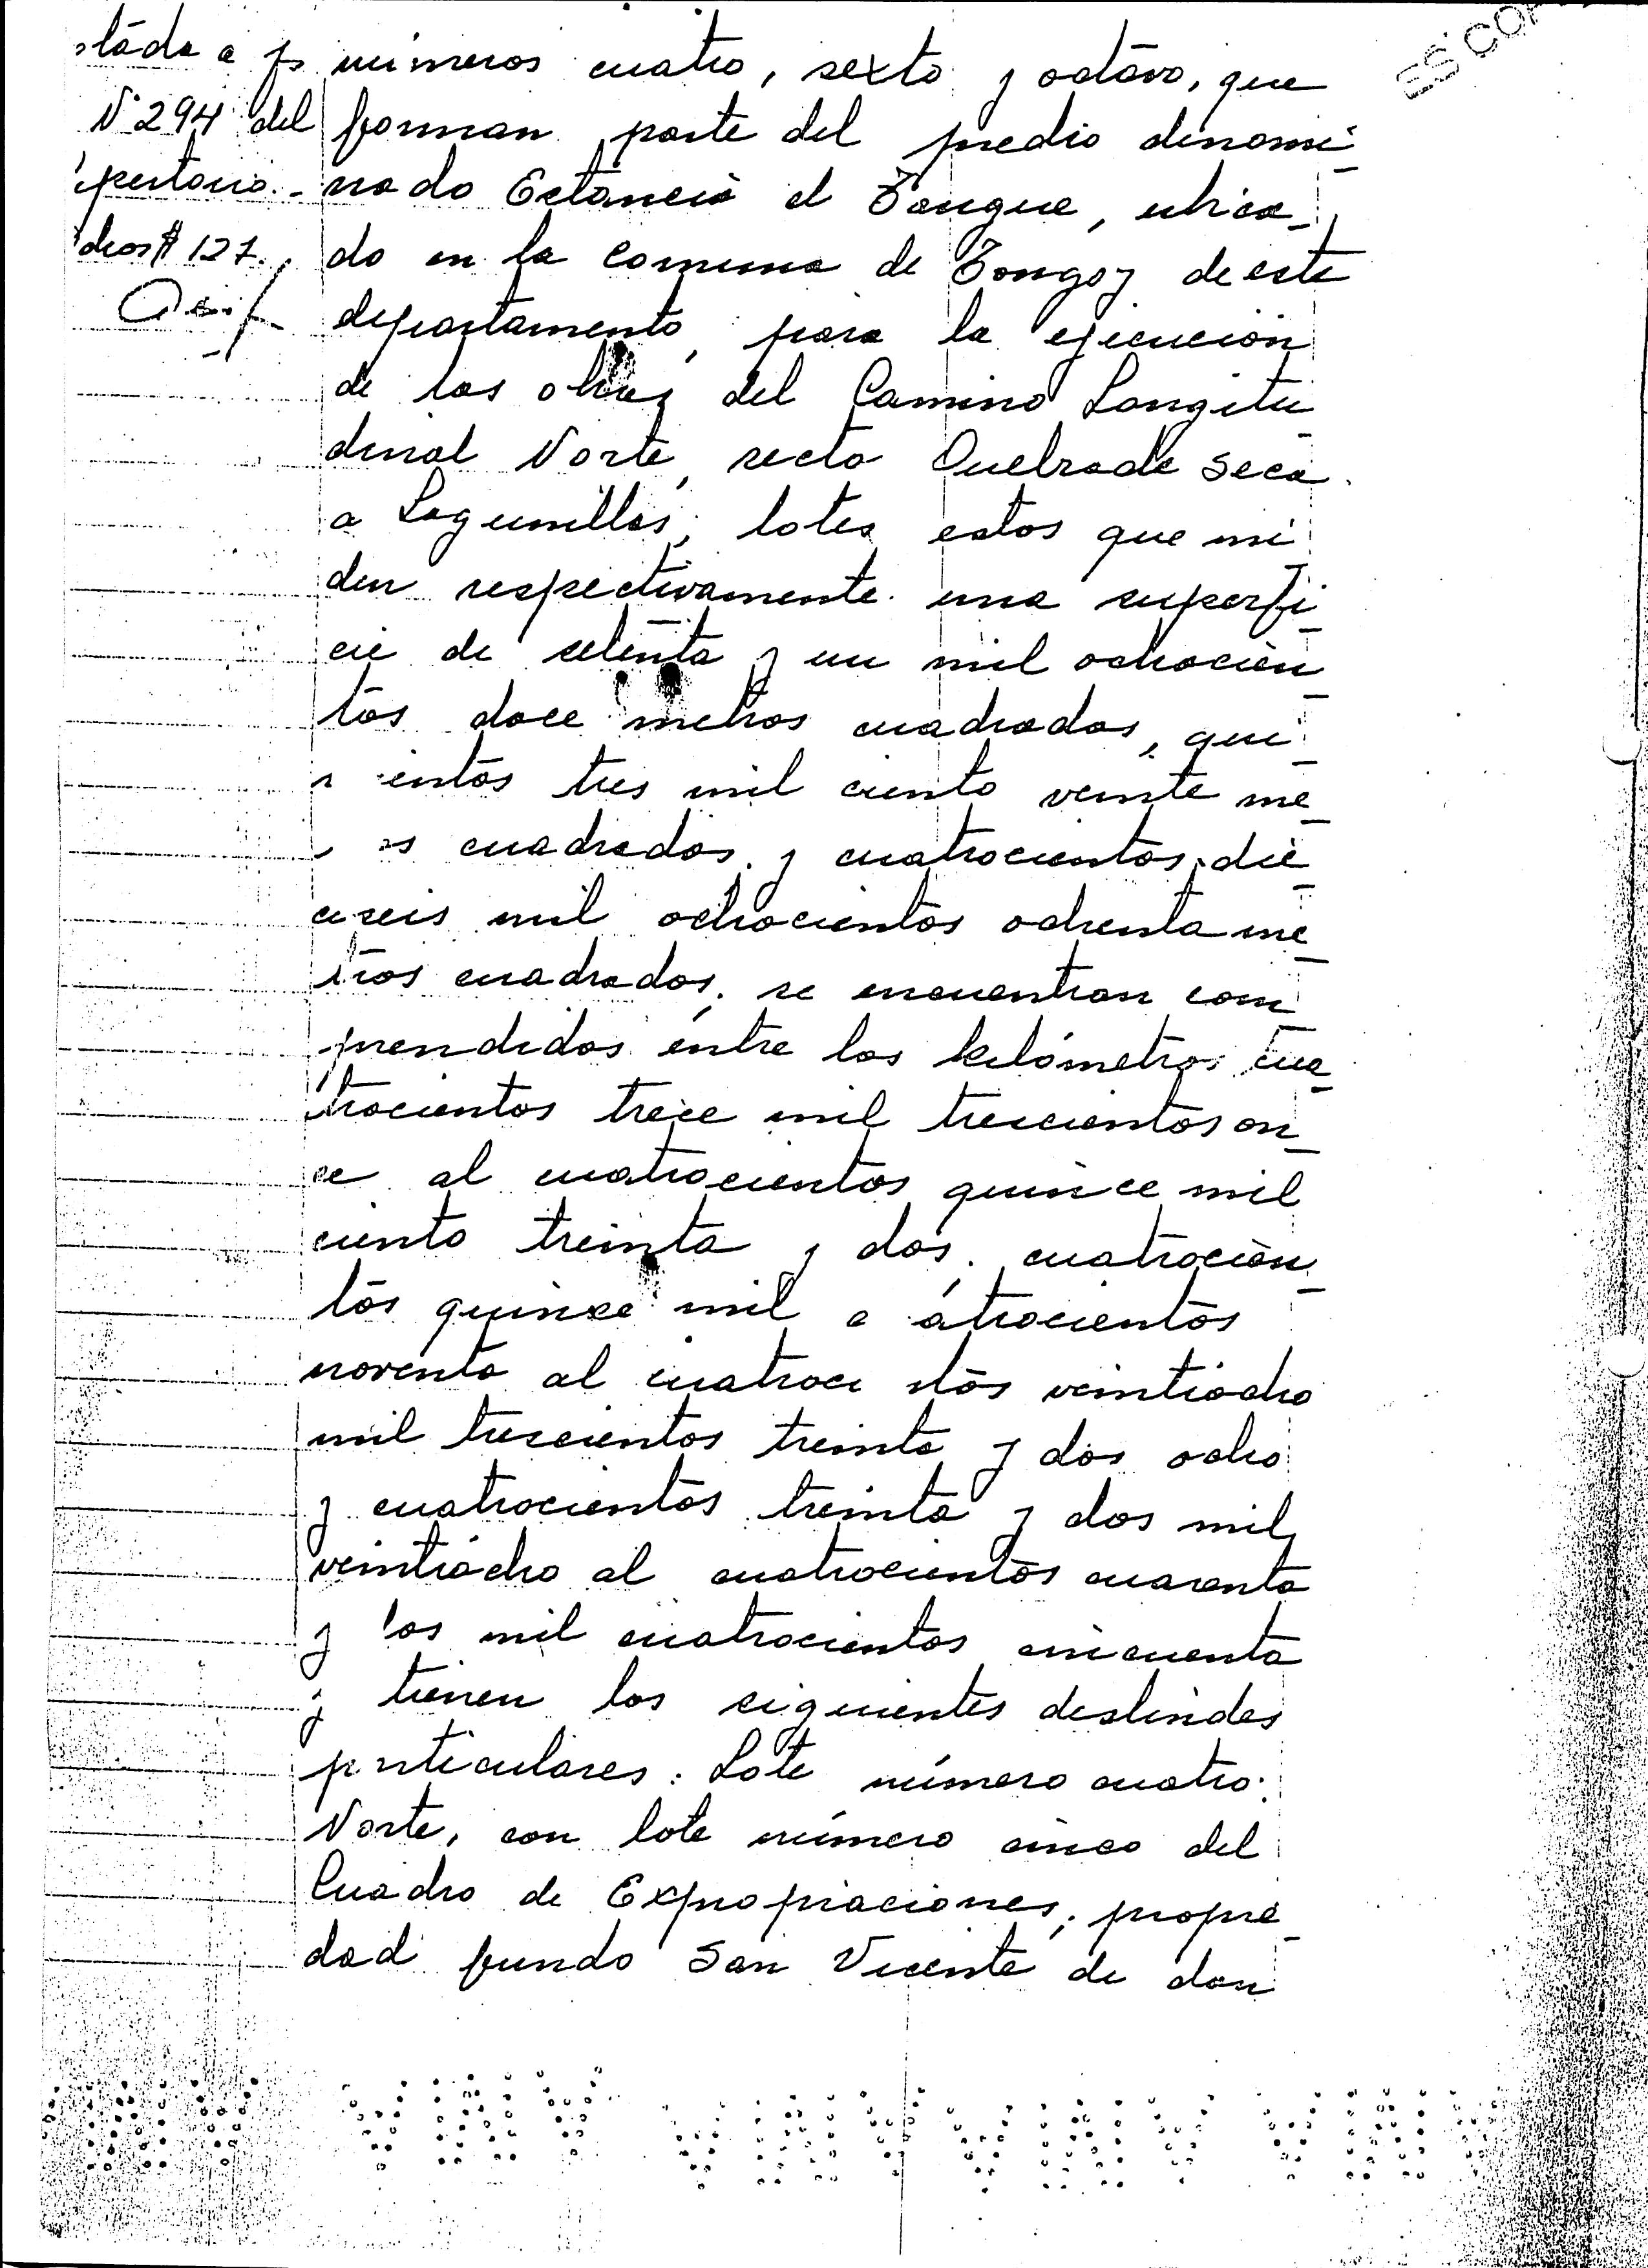 N° 294 del
dros $ 127.
ES COP
números cuatro, sexto y octavo, que
forman parte del predio denomi_
nado Estancia el Tangue, ubica_
do en la Comuna de Tongoy de este
departamento, para la ejecución
de las obras del Camino Longitu_
dinal Norte, recta Quebrada Seca
a Lagunillas, lotes estos que mi
den respectivamente una superfi_
cie de setenta y un mil ochocien_
tos doce metros cuadrados, qui_
entos tres mil ciento veinte me_
os cuadrados y cuatrocientos die_
ciseis mil ochocientos ochenta me_
tros cuadrados, se encuentran com_
prendidos entre los kilómetros cua_
trocientos trece mil trescientos on_
ce al cuatrocientos quince mil
ciento treinta y dos, cuatrocien_
tos quince mil c atrocientos
noventa al cuatroci ntos veintiocho
mil trescientos treinta y dos ocho
y cuatrocientos treinta y dos mil
veintiocho al cuatrocientos cuarenta
y os mil cuatrocientos cincuenta
y tienen los siguientes deslindes
p rticulares: Lote número cuatro:
Norte, con lote número cinco del
Cuadro de Expropiaciones, propie_
dad fundo San Vicente de don